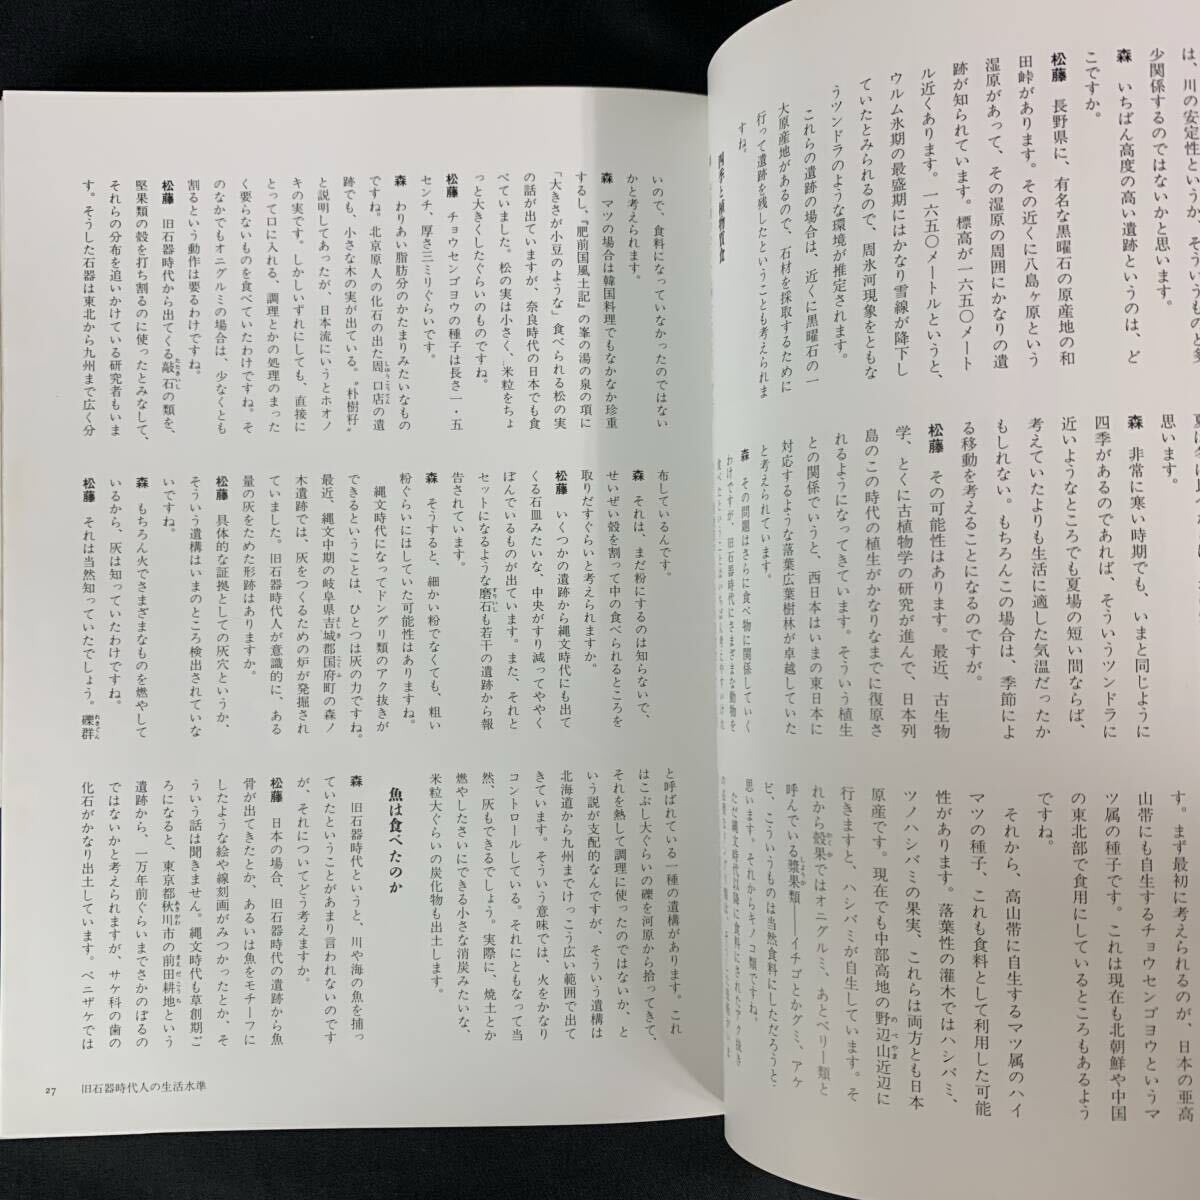 は、川の安定性というか、そういうものと多
少関係するのではないかと思います。
森　いちばん高度の高い遺跡というのは、ど
こですか。
松藤　長野県に、有名な黒曜石の原産地の和
田峠があります。その近くに八島ヶ原という
湿原があって、その湿原の周囲にかなりの遺
跡が知られています。標高が一六五〇メート
ル近くあります。一六五〇メートルというと、
ウルム氷期の最盛期にはかなり雪線が降下し
ていたとみられるので、周氷河現象をともな
うツンドラのような環境が推定されます。
これらの遺跡の場合は、近くに黒曜石の一
大原産地があるので、石材を採取するために
行って遺跡を残したということも考えられま
すね。
思います。
森　非常に寒い時期でも、いまと同じように
四季があるのであれば、そういうツンドラに
近いようなところでも夏場の短い間ならば、
考えていたよりも生活に適した気温だったか
もしれない。もちろんこの場合は、季節によ
る移動を考えることになるのですが。
松藤　その可能性はあります。最近、古生物
学、とくに古植物学の研究が進んで、日本列
島のこの時代の植生がかなりなまでに復原さ
れるようになってきています。そういう植生
との関係でいうと、西日本はいまの東日本に
対応するような落葉広葉樹林が卓越していた
と考えられています。
森　その問題はさらに食べ物に関係していく
わけですが、旧石器時代にさまざまな動物を
す。まず最初に考えられるのが、日本の亜高
山帯にも自生するチョウセンゴヨウというマ
ツ属の種子です。これは現在も北朝鮮や中国
の東北部で食用にしているところもあるよう
ですね。
それから、高山帯に自生するマツ属のハイ
マツの種子、これも食料として利用した可能
性があります。落葉性の灌木ではハシバミ、
ツノハシバミの果実、これらは両方とも日本
原産です。現在でも中部高地の野辺山近辺に
行きますと、ハシバミが自生しています。そ
れから殻果ではオニグルミ、あとベリー類と
呼んでいる漿果類――イチゴとかグミ、アケ
ビ、こういうものは当然食料にしただろうと
思います。それからキノコ類ですね。
ただ縄文時代以降に食料にされたアク抜き
いので、食料になっていなかったのではない
かと考えられます。
森　マツの場合は韓国料理でもなかなか珍重
するし、『肥前国風土記』の峯の湯の泉の項に
「大きさが小豆のような」食べられる松の実
の話が出ていますが、奈良時代の日本でも食
べていました。松の実は小さく、米粒をちょ
っと大きくしたぐらいのものですね。
松藤　チョウセンゴヨウの種子は長さ一・五
センチ、厚さ三ミリぐらいです。
森　わりあい脂肪分のかたまりみたいなもの
ですね。北京原人の化石の出た周口店の遺
跡でも、小さな木の実が出ている。“朴樹籽”
と説明してあったが、日本流にいうとホオノ
キの実です。しかしいずれにしても、直接に
とって口に入れる、調理とかの処理のまった
く要らないものを食べていたわけですね。そ
のなかでもオニグルミの場合は、少なくとも
割るという動作は要るわけですね。
松藤　旧石器時代から出てくる敲石の類を、
堅果類の殻を打ち割るのに使ったとみなして、
それらの分布を追いかけている研究者もいま
す。そうした石器は東北から九州まで広く分
布しているんです。
森　それは、まだ粉にするのは知らないで、
せいぜい殻を割って中の食べられるところを
取りだすぐらいと考えられますか。
松藤　いくつかの遺跡から縄文時代にも出て
くる石皿みたいな、中央がすり減ってややく
ぼんでいるものが出ています。また、それと
セットになるような磨石も若干の遺跡から報
告されています。
森　そうすると、細かい粉でなくても、粗い
粉ぐらいにはしていた可能性はありますね。
縄文時代になってドングリ類のアク抜きが
できるということは、ひとつは灰の力ですね。
最近、縄文中期の岐阜県吉城郡国府町の森ノ
木遺跡では、灰をつくるための炉が発掘され
ていました。旧石器時代人が意識的に、ある
量の灰をためた形跡はありますか。
松藤　具体的な証拠としての灰穴というか、
そういう遺構はいまのところ検出されていな
いですね。
森　もちろん火でさまざまなものを燃やして
いるから、灰は知っていたわけですね。
松藤　それは当然知っていたでしょう。礫群
と呼ばれている一種の遺構があります。これ
はこぶし大ぐらいの礫を河原から拾ってきて、
それを熱して調理に使ったのではないか、と
いう説が支配的なんですが、そういう遺構は
北海道から九州までけっこう広い範囲で出て
きています。そういう意味では、火をかなり
コントロールしている。それにともなって当
然、灰もできるでしょう。実際に、焼土とか
燃やしたさいにできる小さな消炭みたいな、
米粒大ぐらいの炭化物も出土します。
魚は食べたのか
森　旧石器時代というと、川や海の魚を捕っ
ていたということがあまり言われないのです
が、それについてどう考えますか。
松藤　日本の場合、旧石器時代の遺跡から魚
骨が出てきたとか、あるいは魚をモチーフに
したような絵や線刻画がみつかったとか、そ
ういう話は聞きません。縄文時代も草創期ご
ろになると、東京都秋川市の前田耕地という
遺跡から、一万年前ぐらいまでさかのぼるの
ではないかと考えられますが、サケ科の歯の
化石がかなり出土しています。ベニザケでは
27　旧石器時代人の生活水準